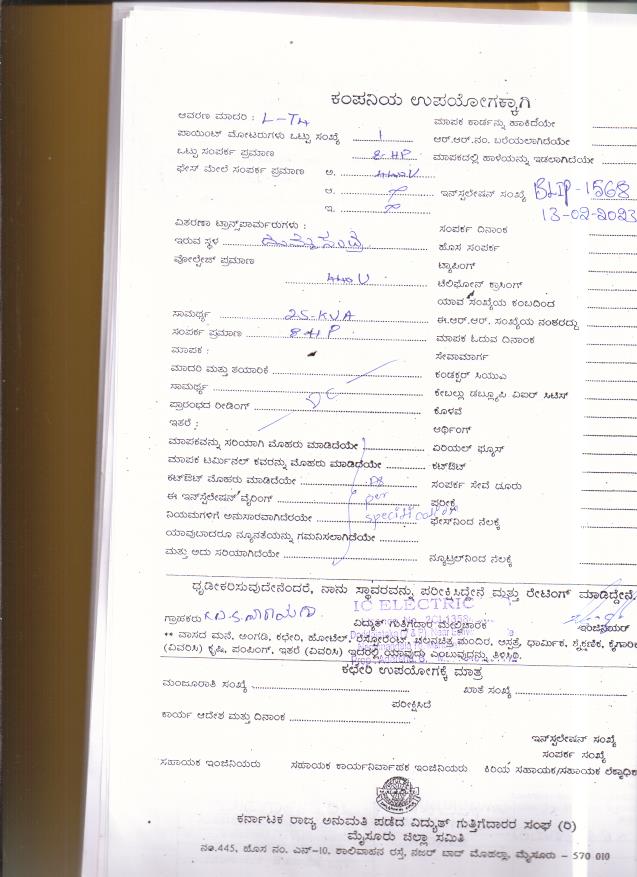 ಕಂಪನಿಯ ಉಪಯೋಗಕ್ಕಾಗಿ
ಆವರಣ ಮಾದರಿ : L-T4
ಮಾಪಕ ಕಾರ್ಡನ್ನು ಹಾಕಿದೆಯೇ
ಪಾಯಿಂಟ್ ಮೋಟರುಗಳು ಒಟ್ಟು ಸಂಖ್ಯೆ 1
ಆರ್.ಆರ್.ನಂ. ಬರೆಯಲಾಗಿದೆಯೇ
ಒಟ್ಟು ಸಂಪರ್ಕ ಪ್ರಮಾಣ 8 HP
ಮಾಪಕದಲ್ಲಿ ಹಾಳೆಯನ್ನು ಇಡಲಾಗಿದೆಯೇ
ಫೇಸ್ ಮೇಲೆ ಸಂಪರ್ಕ ಪ್ರಮಾಣ ಅ. 440 V
ಆ.
ಇನ್‌ಸ್ಟಲೇಷನ್ ಸಂಖ್ಯೆ BLIP-1568
ಇ.
13-02-2023
ವಿತರಣಾ ಟ್ರಾನ್ಸ್‌ಪಾರ್ಮರುಗಳು :
ಸಂಪರ್ಕ ದಿನಾಂಕ
ಇರುವ ಸ್ಥಳ
ಹೊಸ ಸಂಪರ್ಕ
ವೋಲ್ಟೇಜ್ ಪ್ರಮಾಣ
ಟ್ಯಾಪಿಂಗ್
440 V
ಟೆಲಿಫೋನ್ ಕ್ರಾಸಿಂಗ್
ಯಾವ ಸಂಖ್ಯೆಯ ಕಂಬದಿಂದ
ಸಾಮರ್ಥ್ಯ 25-KVA
ಈ.ಆರ್.ಆರ್. ಸಂಖ್ಯೆಯ ನಂತರದ್ದು
ಸಂಪರ್ಕ ಪ್ರಮಾಣ 8 HP
ಮಾಪಕ ಓದುವ ದಿನಾಂಕ
ಮಾಪಕ :
ಸೇವಾಮಾರ್ಗ
ಮಾದರಿ ಮತ್ತು ತಯಾರಿಕೆ
ಕಂಡಕ್ಟರ್ ಸಿಯುಎ
ಸಾಮರ್ಥ್ಯ
ಕೇಬಲ್ಲು ಡಬ್ಲ್ಯೂಪಿ ವಿಐರ್ ಸಿಟಿಸ್
ಪ್ರಾರಂಭದ ರೀಡಿಂಗ್
ಕೊಳವೆ
ಇತರೆ :
ಅರ್ಥಿಂಗ್
ಮಾಪಕವನ್ನು ಸರಿಯಾಗಿ ಮೊಹರು ಮಾಡಿದೆಯೇ
ಏರಿಯಲ್ ಫ್ಯೂಸ್
ಮಾಪಕ ಟರ್ಮಿನಲ್ ಕವರನ್ನು ಮೊಹರು ಮಾಡಿದೆಯೇ
ಕಟ್‌ಔಟ್
ಕಟ್‌ಔಟ್ ಮೊಹರು ಮಾಡಿದೆಯೇ
ಸಂಪರ್ಕ ಸೇವೆ ದೂರು
ಈ ಇನ್‌ಸ್ಟಲೇಷನ್ ವೈರಿಂಗ್ per
ಪರೀಕ್ಷೆ
ನಿಯಮಗಳಿಗೆ ಅನುಸಾರವಾಗಿದೆರೆಯೇ
ಫೇಸ್‌ನಿಂದ ನೆಲಕ್ಕೆ
ಯಾವುದಾದರೂ ನ್ಯೂನತೆಯನ್ನು ಗಮನಿಸಲಾಗಿದೆಯೇ
ಮತ್ತು ಅದು ಸರಿಯಾಗಿದೆಯೇ
ನ್ಯೂಟ್ರಲ್‌ನಿಂದ ನೆಲಕ್ಕೆ
ಧೃಡೀಕರಿಸುವುದೇನೆಂದರೆ, ನಾನು ಸ್ಥಾವರವನ್ನು ಪರೀಕ್ಷಿಸಿದ್ದೇನೆ ಮತ್ತು ರೇಟಿಂಗ್ ಮಾಡಿದ್ದೇನೆ.
IC ELECTRIC
ಗ್ರಾಹಕರು
ವಿದ್ಯುತ್ ಗುತ್ತಿಗೆದಾರ ಮೇಲಿಚಾರಕ
ಇಂಜಿನಿಯರ್
** ವಾಸದ ಮನೆ, ಅಂಗಡಿ, ಕಛೇರಿ, ಹೋಟೆಲ್, ರೆಸ್ಟೋರೆಂಟ್, ಚಲನಚಿತ್ರ ಮಂದಿರ, ಆಸ್ಪತ್ರೆ, ಧಾರ್ಮಿಕ, ಶೈಕ್ಷಣಿಕ, ಕೈಗಾರಿಕೆ
(ವಿವರಿಸಿ) ಕೃಷಿ, ಪಂಪಿಂಗ್, ಇತರೆ (ವಿವರಿಸಿ) ಇದರಲ್ಲಿ ಯಾವುದು ಎಂಬುವುದನ್ನು ತಿಳಿಸಿರಿ.
ಕಛೇರಿ ಉಪಯೋಗಕ್ಕೆ ಮಾತ್ರ
ಮಂಜೂರಾತಿ ಸಂಖ್ಯೆ
ಖಾತೆ ಸಂಖ್ಯೆ
ಪರೀಕ್ಷಿಸಿದೆ
ಕಾರ್ಯ ಆದೇಶ ಮತ್ತು ದಿನಾಂಕ
ಇನ್‌ಸ್ಟಲೇಷನ್ ಸಂಖ್ಯೆ
ಸಂಪರ್ಕ ಸಂಖ್ಯೆ
ಸಹಾಯಕ ಇಂಜಿನಿಯರು
ಸಹಾಯಕ ಕಾರ್ಯನಿರ್ವಾಹಕ ಇಂಜಿನಿಯರು
ಕಿರಿಯ ಸಹಾಯಕ/ಸಹಾಯಕ ಲೆಕ್ಕಾಧಿಕ
ಕರ್ನಾಟಕ ರಾಜ್ಯ ಅನುಮತಿ ಪಡೆದ ವಿದ್ಯುತ್ ಗುತ್ತಿಗೆದಾರರ ಸಂಘ (ರಿ)
ಮೈಸೂರು ಜಿಲ್ಲಾ ಸಮಿತಿ
ನಂ.445, ಹೊಸ ನಂ. ಎನ್-10, ಶಾಲಿವಾಹನ ರಸ್ತೆ, ನಜರ್ ಬಾದ್ ಮೊಹಲ್ಲಾ, ಮೈಸೂರು - 570 010